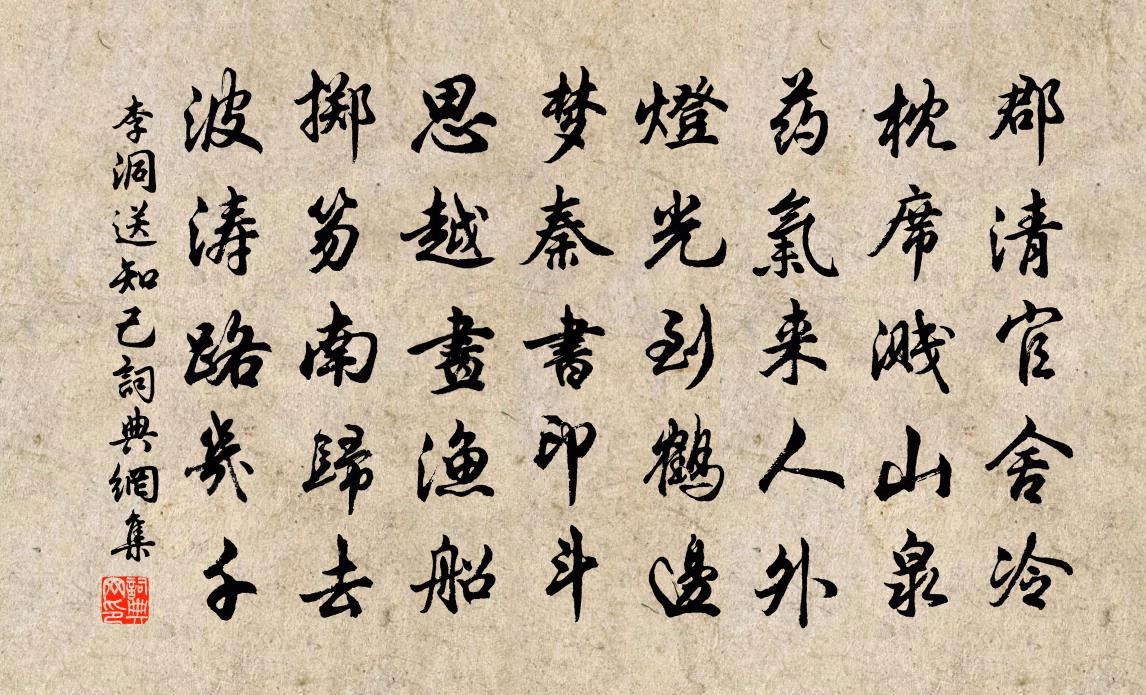 郡清官舍冷
枕席溅山泉
药氣来人外
燈光到鶴邊
梦秦書印斗
思越畫漁船
掷笏南歸去
波涛路幾千
李洞送知己詞典網集
詞典網印